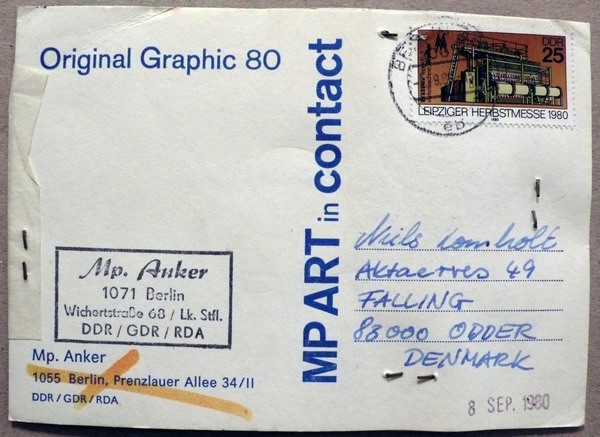 Original Graphic 80
MP ART in contact
DDR
25
LEIPZIGER HERBSTMESSE 1980
1980
Mp. Anker
1071 Berlin
Wichertstraße 68 / Lk. Stfl.
DDR / GDR / RDA
Mp. Anker
1055 Berlin, Prenzlauer Allee 34/II
DDR / GDR / RDA
Niels Lomholt
Aktaerves 49
FALLING
83000 ODDER
DENMARK
8 SEP. 1980